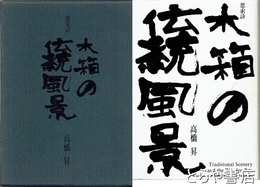 思索詩
木箱の
伝統風景
高橋 昇
思索詩
木箱の
伝統風景
高橋 昇
Traditional Scenery
とんや書店